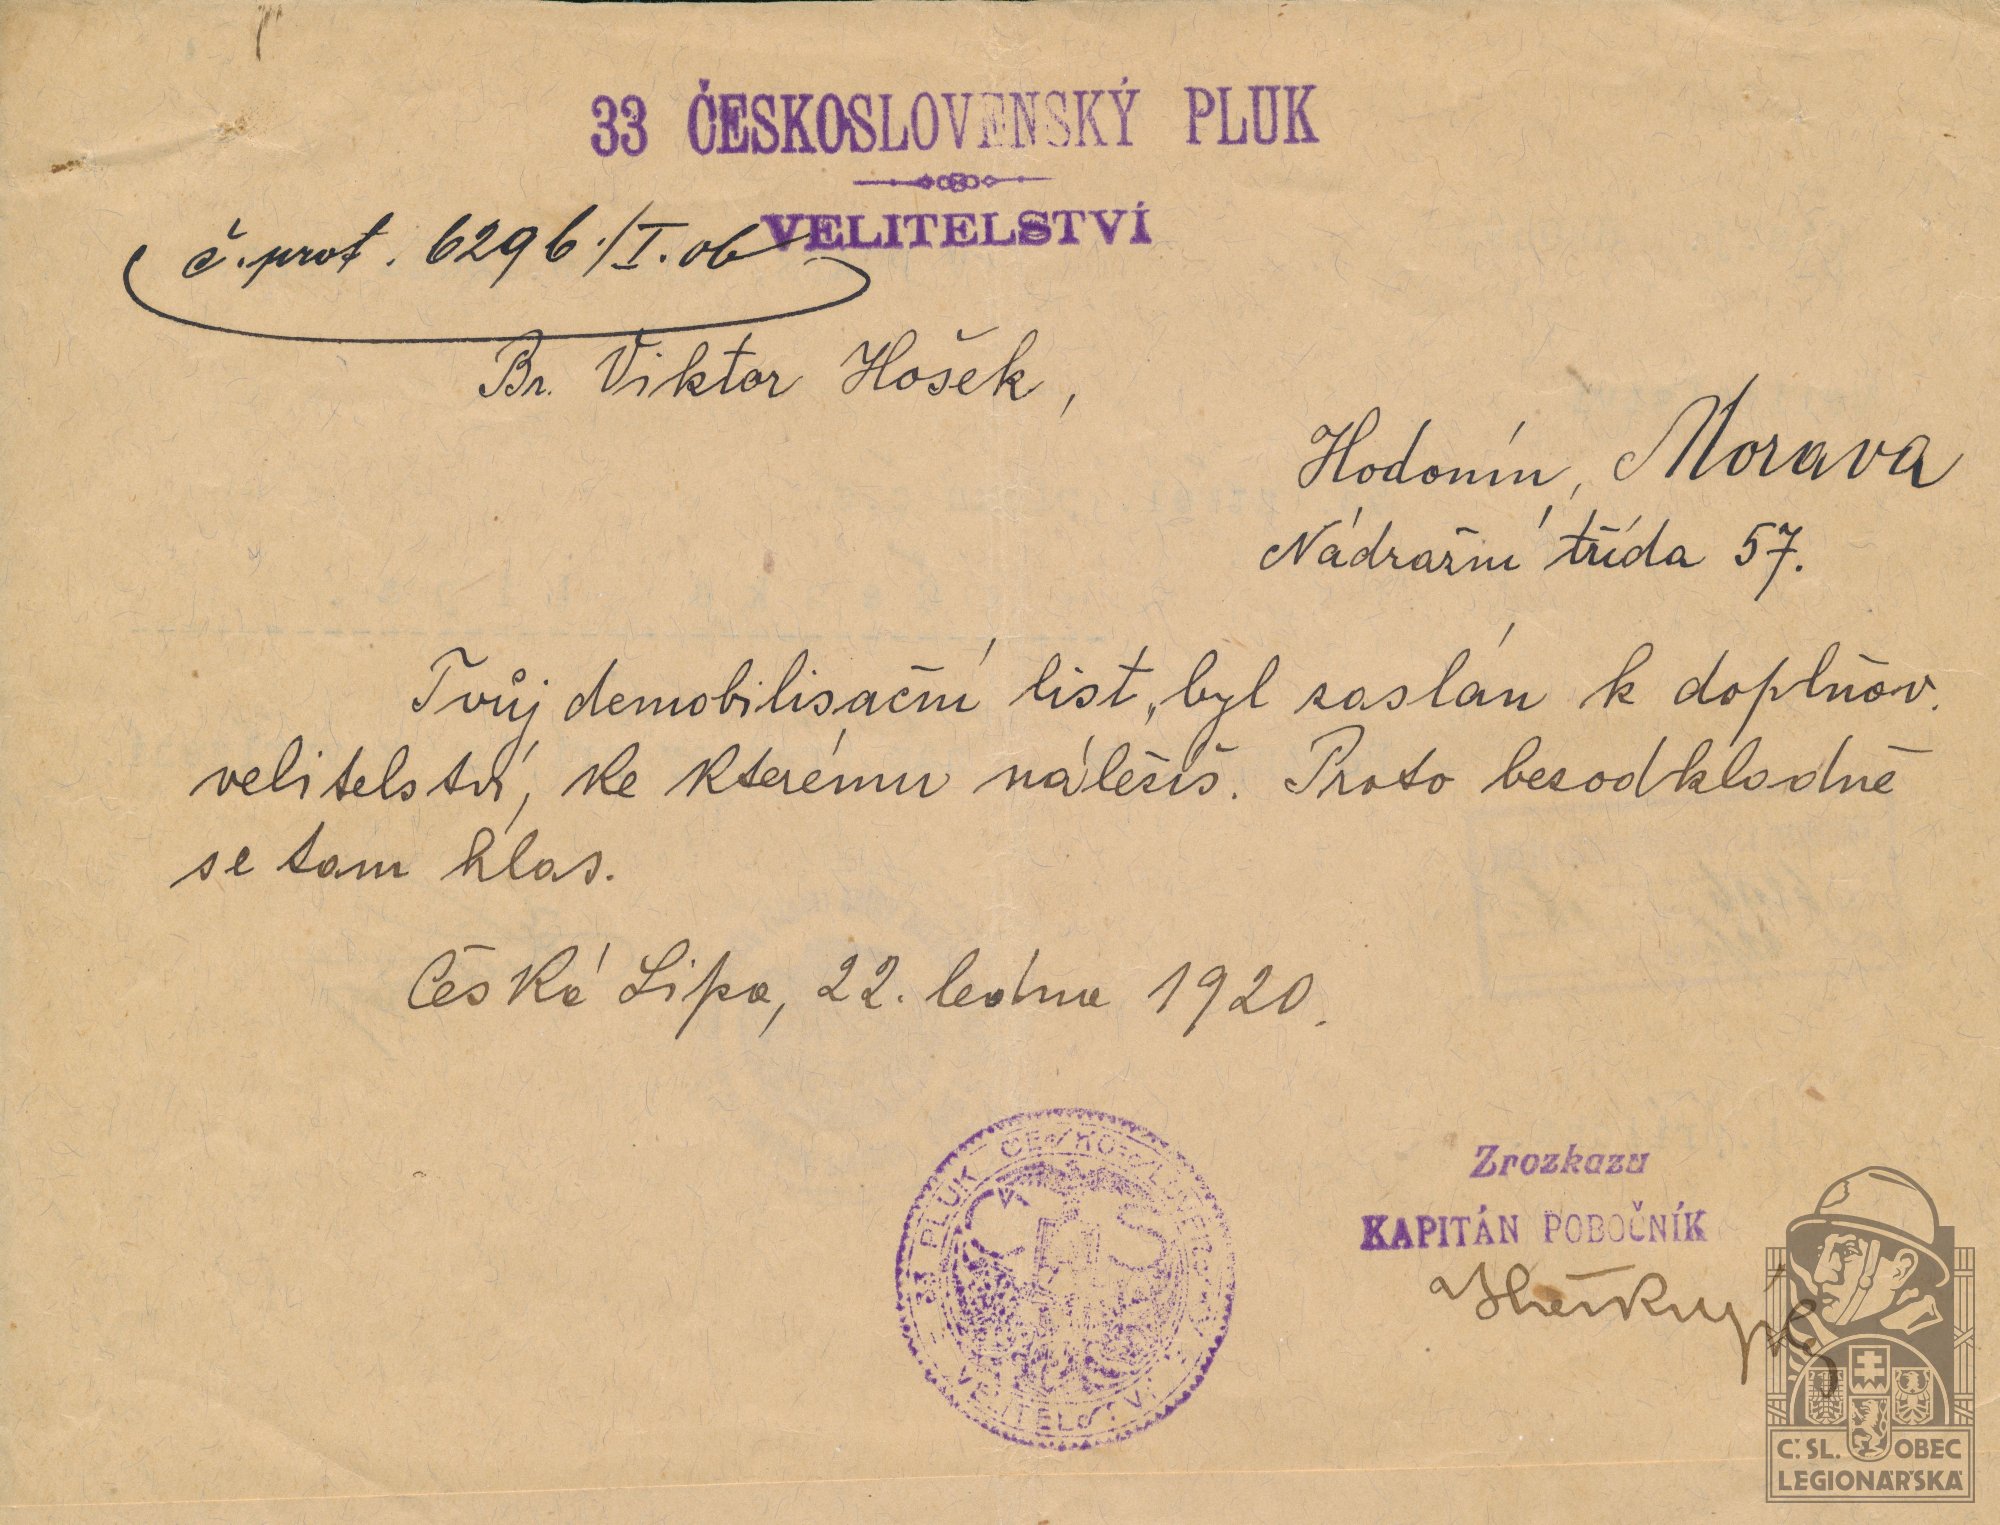 33 ČESKOSLOVENSKÝ PLUK
VELITELSTVÍ
č. prot. 6296./I. ob
Br. Viktor Hošek,
Hodonín, Morava
Nádražní třída 57.
Tvůj demobilisační list, byl zaslán k doplňov.
velitelství, ke kterému náležíš. Proto bezodkladně
se tam hlas.
Česká Lípa, 22. ledna 1920.
33 PLUK ČESKO-SLOVENSKÝ
VELITELSTVÍ
Z rozkazu
KAPITÁN POBOČNÍK
Č. SL. OBEC
LEGIONÁŘSKÁ